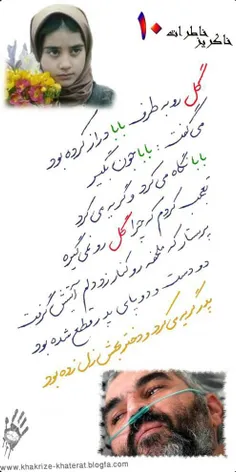 خاکریز خاطرات ۱۰
گل رو به طرف بابا دراز کرده بود
می گفت : بابا جون بگیر
بابا نگاه می کرد و گریه می کرد
تعجب کردم که چرا گل رو نمی گیره
پرستار که ملحفه رو کنار زد دلم آتیش گرفت
دو دست و دو پای پدر قطع شده بود
پدر گریه می کرد و دختر بهش زل زده بود
www.khakrize-khaterat.blogfa.com